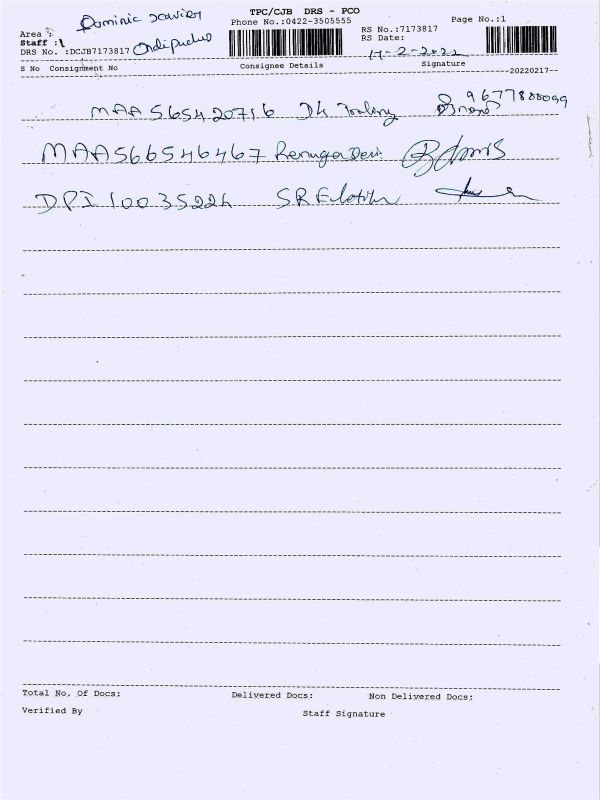 Dominic xavier TPC/CJB DRS - PCO Page No.:1
Area : Phone No.:0422-3505555 RS No.:7173817
Staff : RS Date: 17-2-2022
DRS No. :DCJB7173817 Ondipudur
S No Consignment No Consignee Details Signature
--20220217--
MAA 565420716 Dk Trading 9677888099
MAA566546467 Renuga Devi
DPI 100352224 SR
Total No. Of Docs: Delivered Docs: Non Delivered Docs:
Verified By Staff Signature